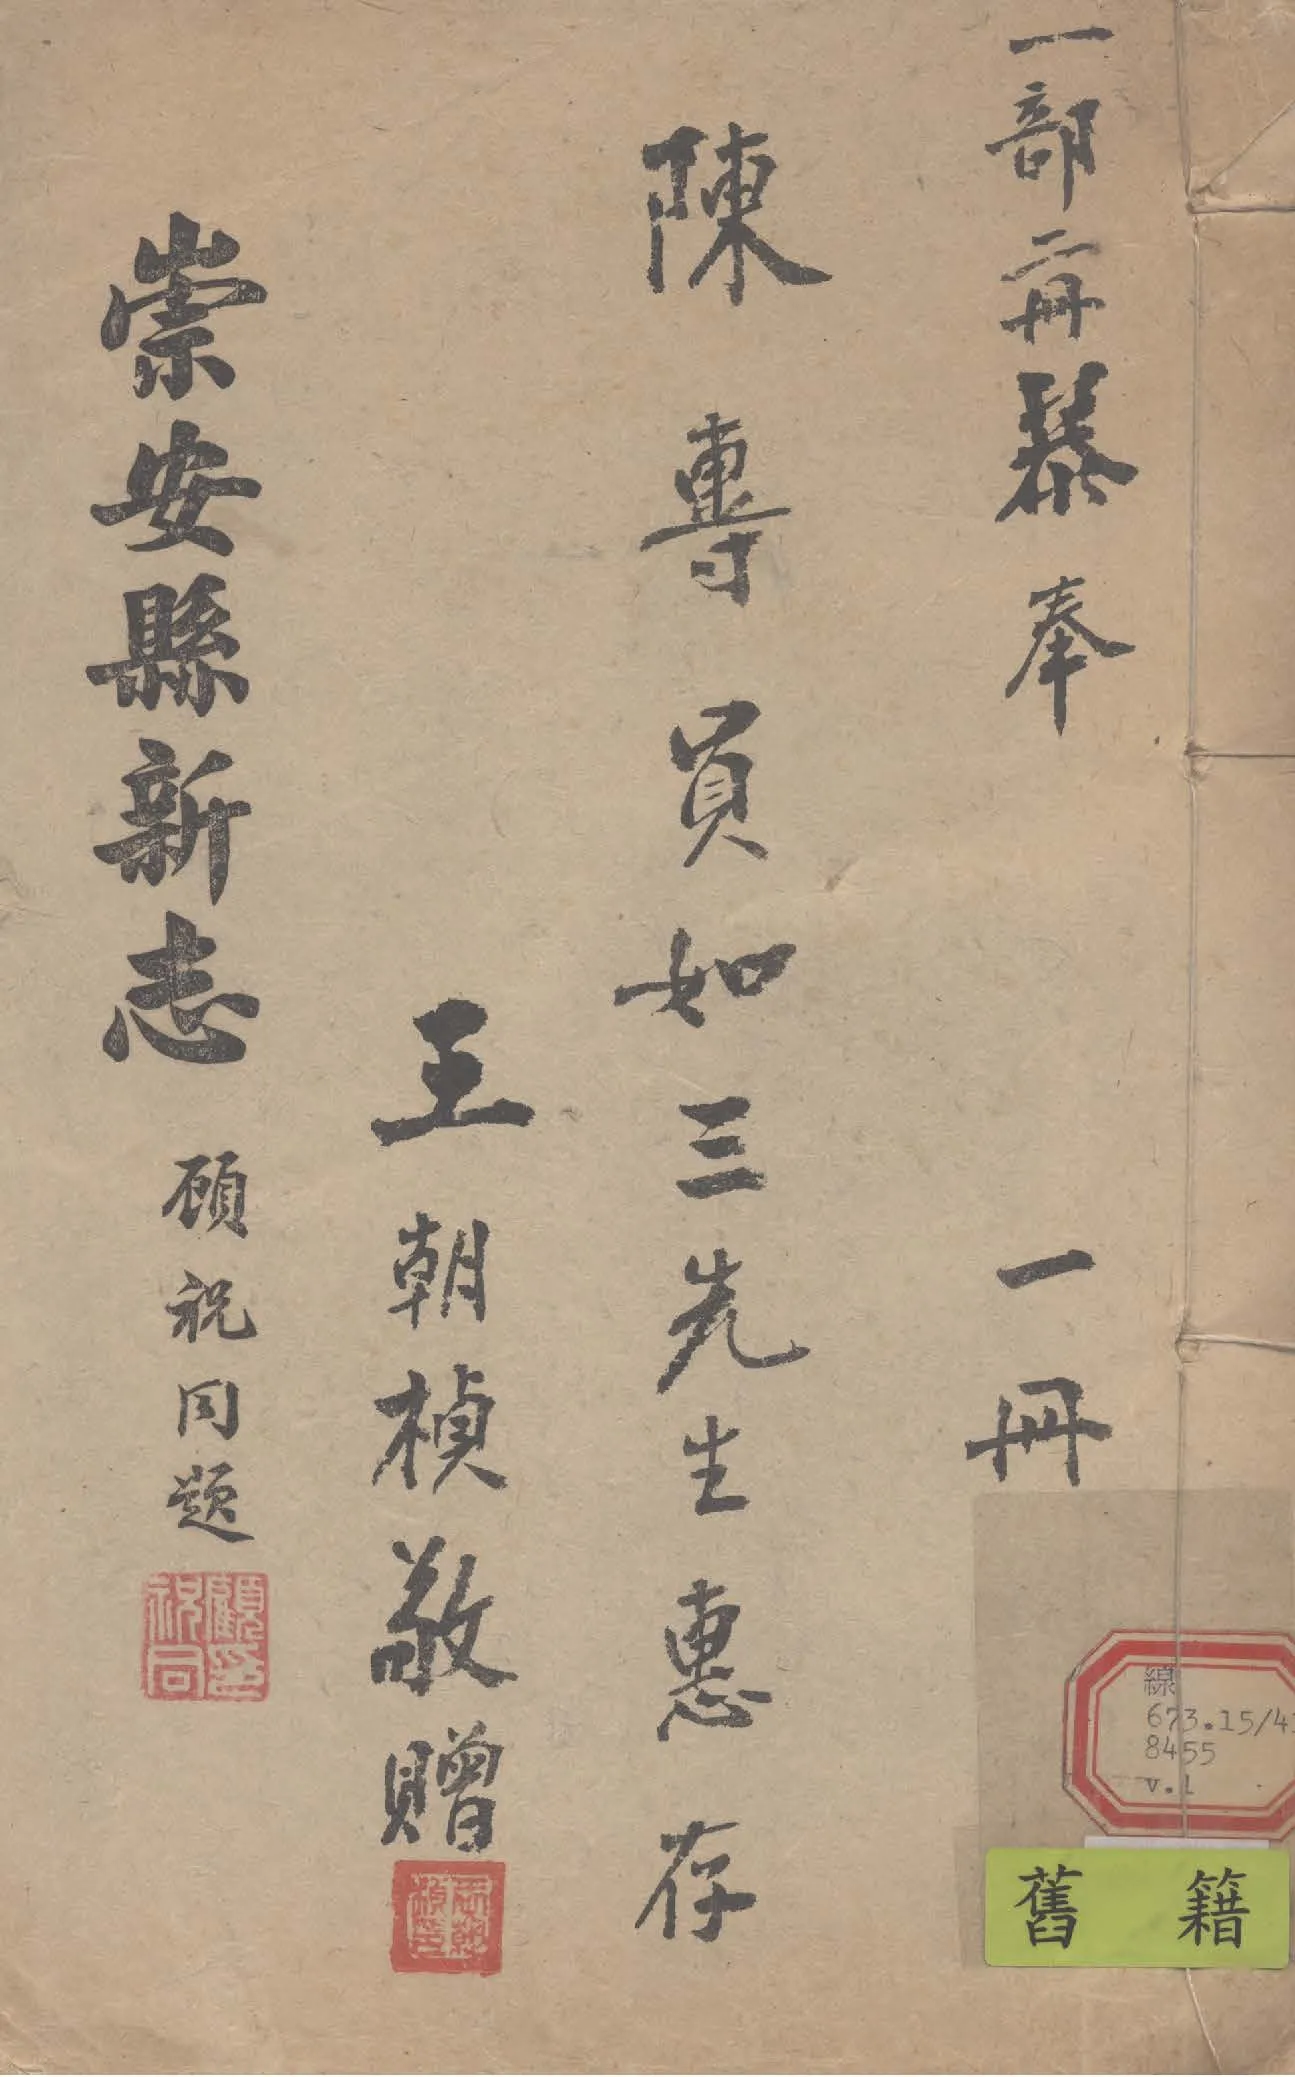 一部二冊
奉
一冊
陳專員如三先生惠存
王朝楨敬贈
王朝楨印
崇安縣新志
顧祝同題
顧祝同印
線
673.15/4
8455
v.1
舊籍